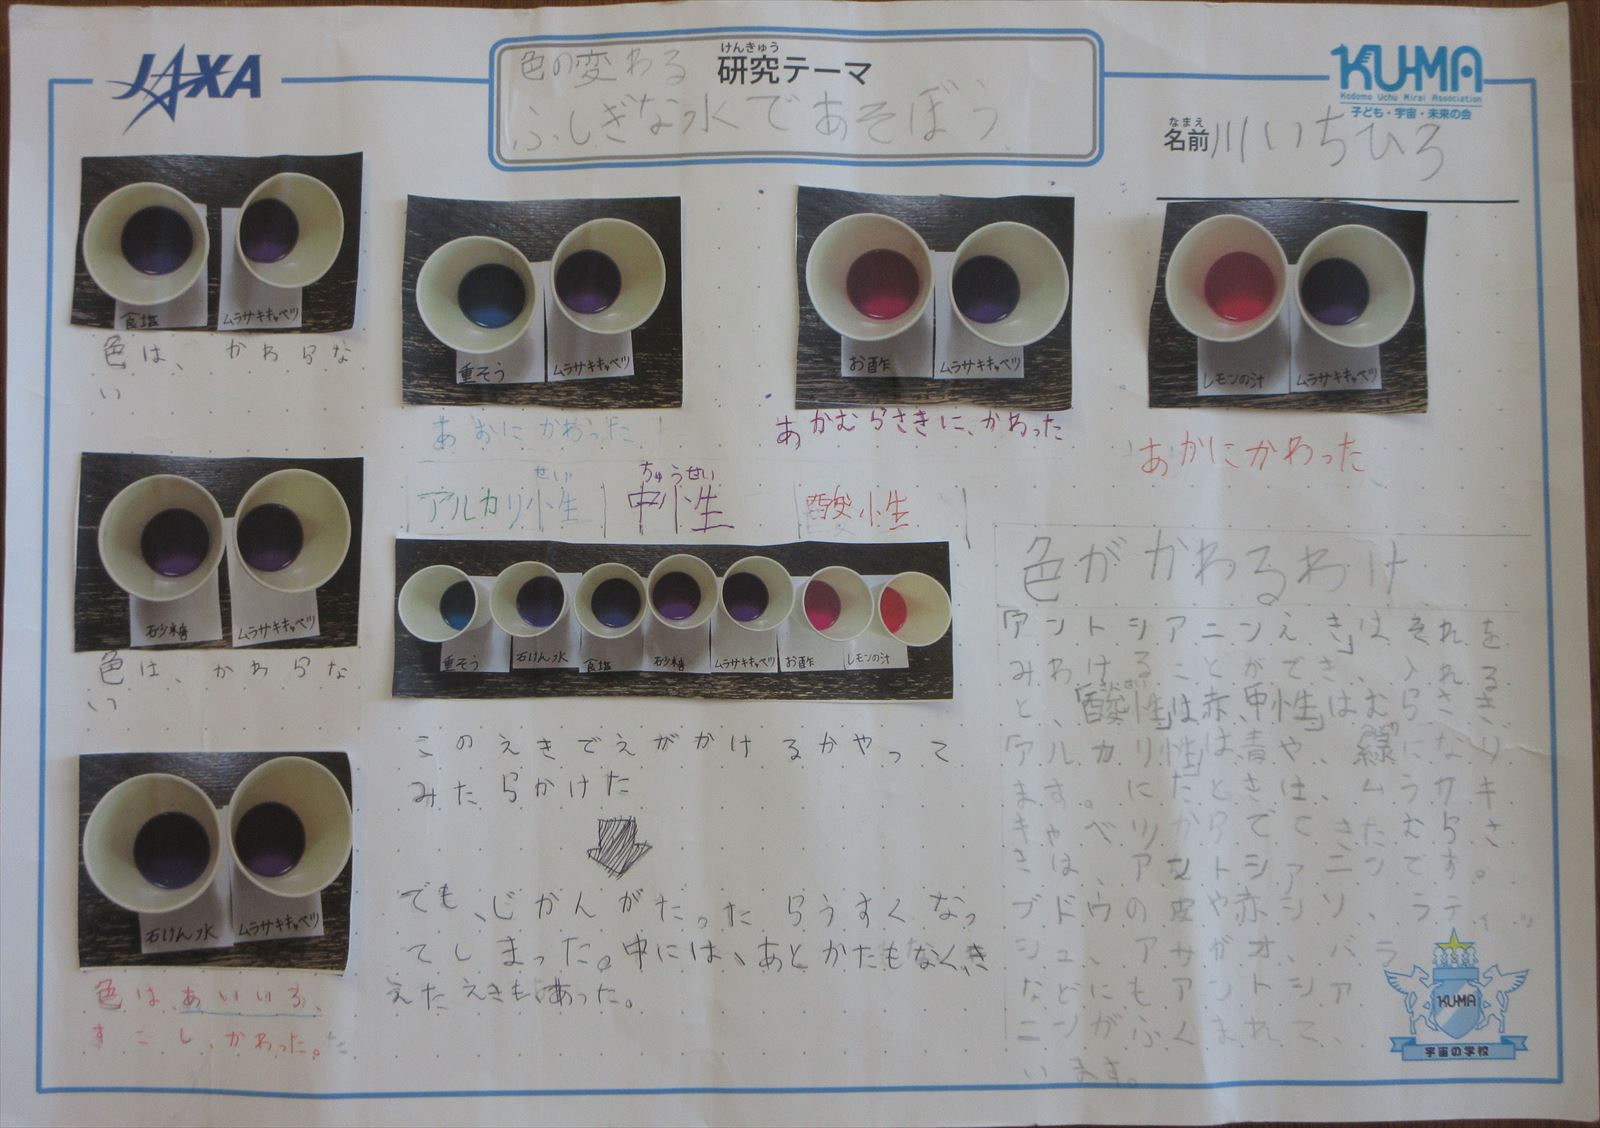 JAXA
けんきゅう
色の変わる 研究テーマ
ふしぎな水であそぼう
KU-MA
Kodomo Uchu Mirai Association
子ども・宇宙・未来の会
なまえ
名前 川いちひろ
食塩 ムラサキキャベツ
色は、かわらな
い
重そう ムラサキキャベツ
あおにかわった
お酢 ムラサキキャベツ
あかむらさきに、かわった
レモンの汁 ムラサキキャベツ
あかにかわった
砂糖 ムラサキキャベツ
色は、かわらな
い
石けん水 ムラサキキャベツ
色はあいいろ、
すこし、かわった。
せい ちゅうせい
アルカリ性 中性 酸性
重そう 石けん水 食塩 砂糖 ムラサキキャベツ お酢 レモンの汁
このえきでえがかけるかやって
みたらかけた
でも、じかんがたったらうすくなっ
てしまった。中には、あとかたもなく、き
えたえきも、あった。
色がかわるわけ
「アントシアニンえき」はそれを
みわけることができ、入れる
と、「酸性」は赤、「中性」はむらさき
「アルカリ性」は青や、緑になり
ます。
ブドウの皮や赤シソ、
などにもアントシア
ニンがふくまれて、
います。
KU-MA
宇宙の学校